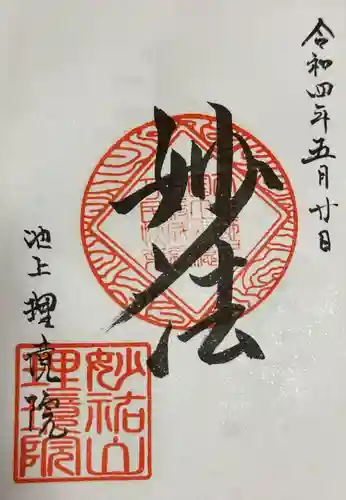 令和四年五月廿日
妙法
池上 理境院
妙祐山
理境院